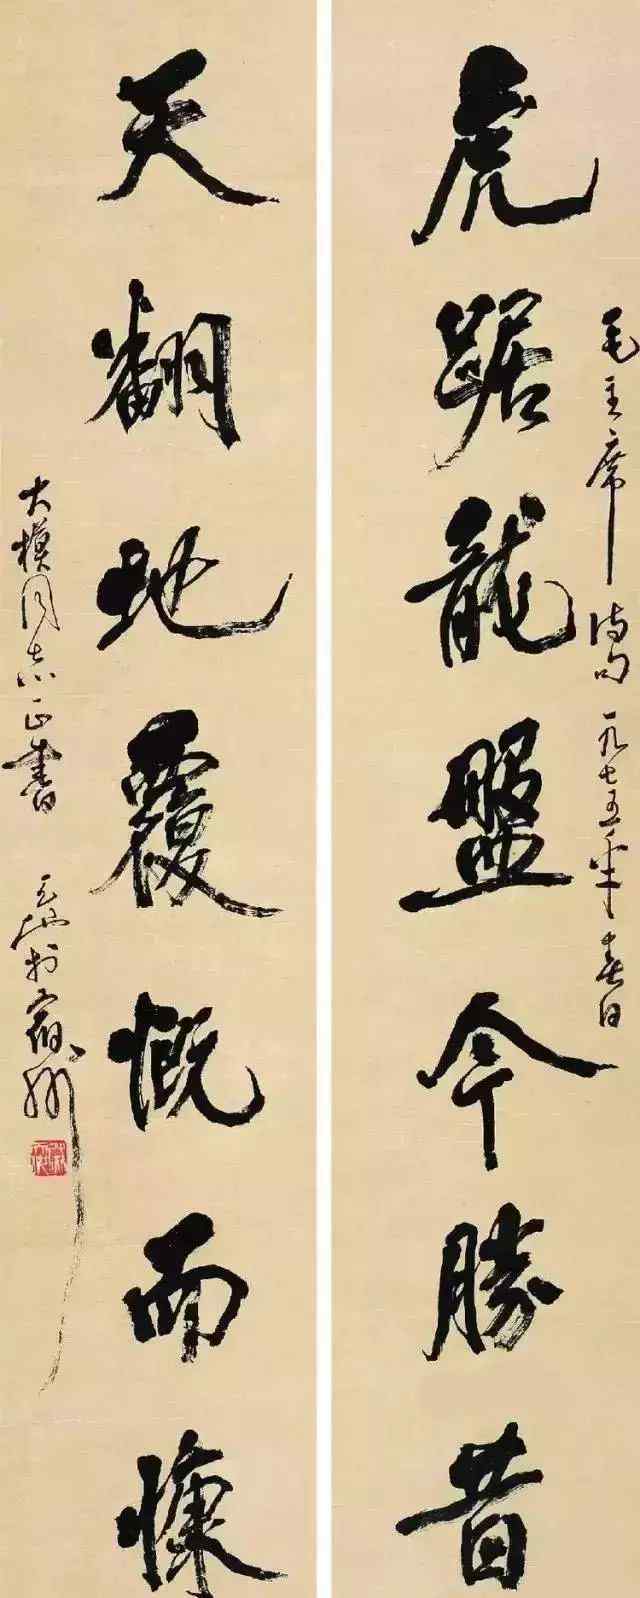 毛主席诗句 一九七五年春日
虎踞龍盤今勝昔
天翻地覆慨而慷
大模同志正書